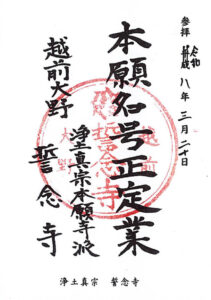 参拝 令和八年三月二十日
本願名号正定業
浄土真宗本願寺派
越前大野 誓念寺
越前
誓念寺
浄土真宗 誓念寺